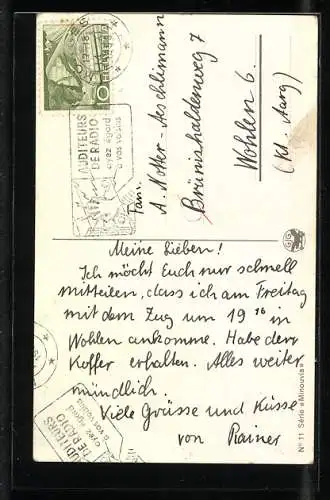 HELVETIA
10
AUDITEURS
DE RADIO
ayez égard
à vos voisins
Fam.
A. Notter-Aeschlimann
Brünishaldenweg 7
Wohlen 6.
(Kt. Aarg)
Meine Lieben!
Ich möcht Euch nur schnell
mitteilen, dass ich am Freitag
mit dem Zug um 19 16 in
Wohlen ankomme. Habe den
Koffer erhalten. Alles weiter
mündlich.
Viele Grüsse und Küsse
von Rainer
AUDITEURS
DE RADIO
ayez égard
à vos voisins
N° 11 Série «Minouvis»